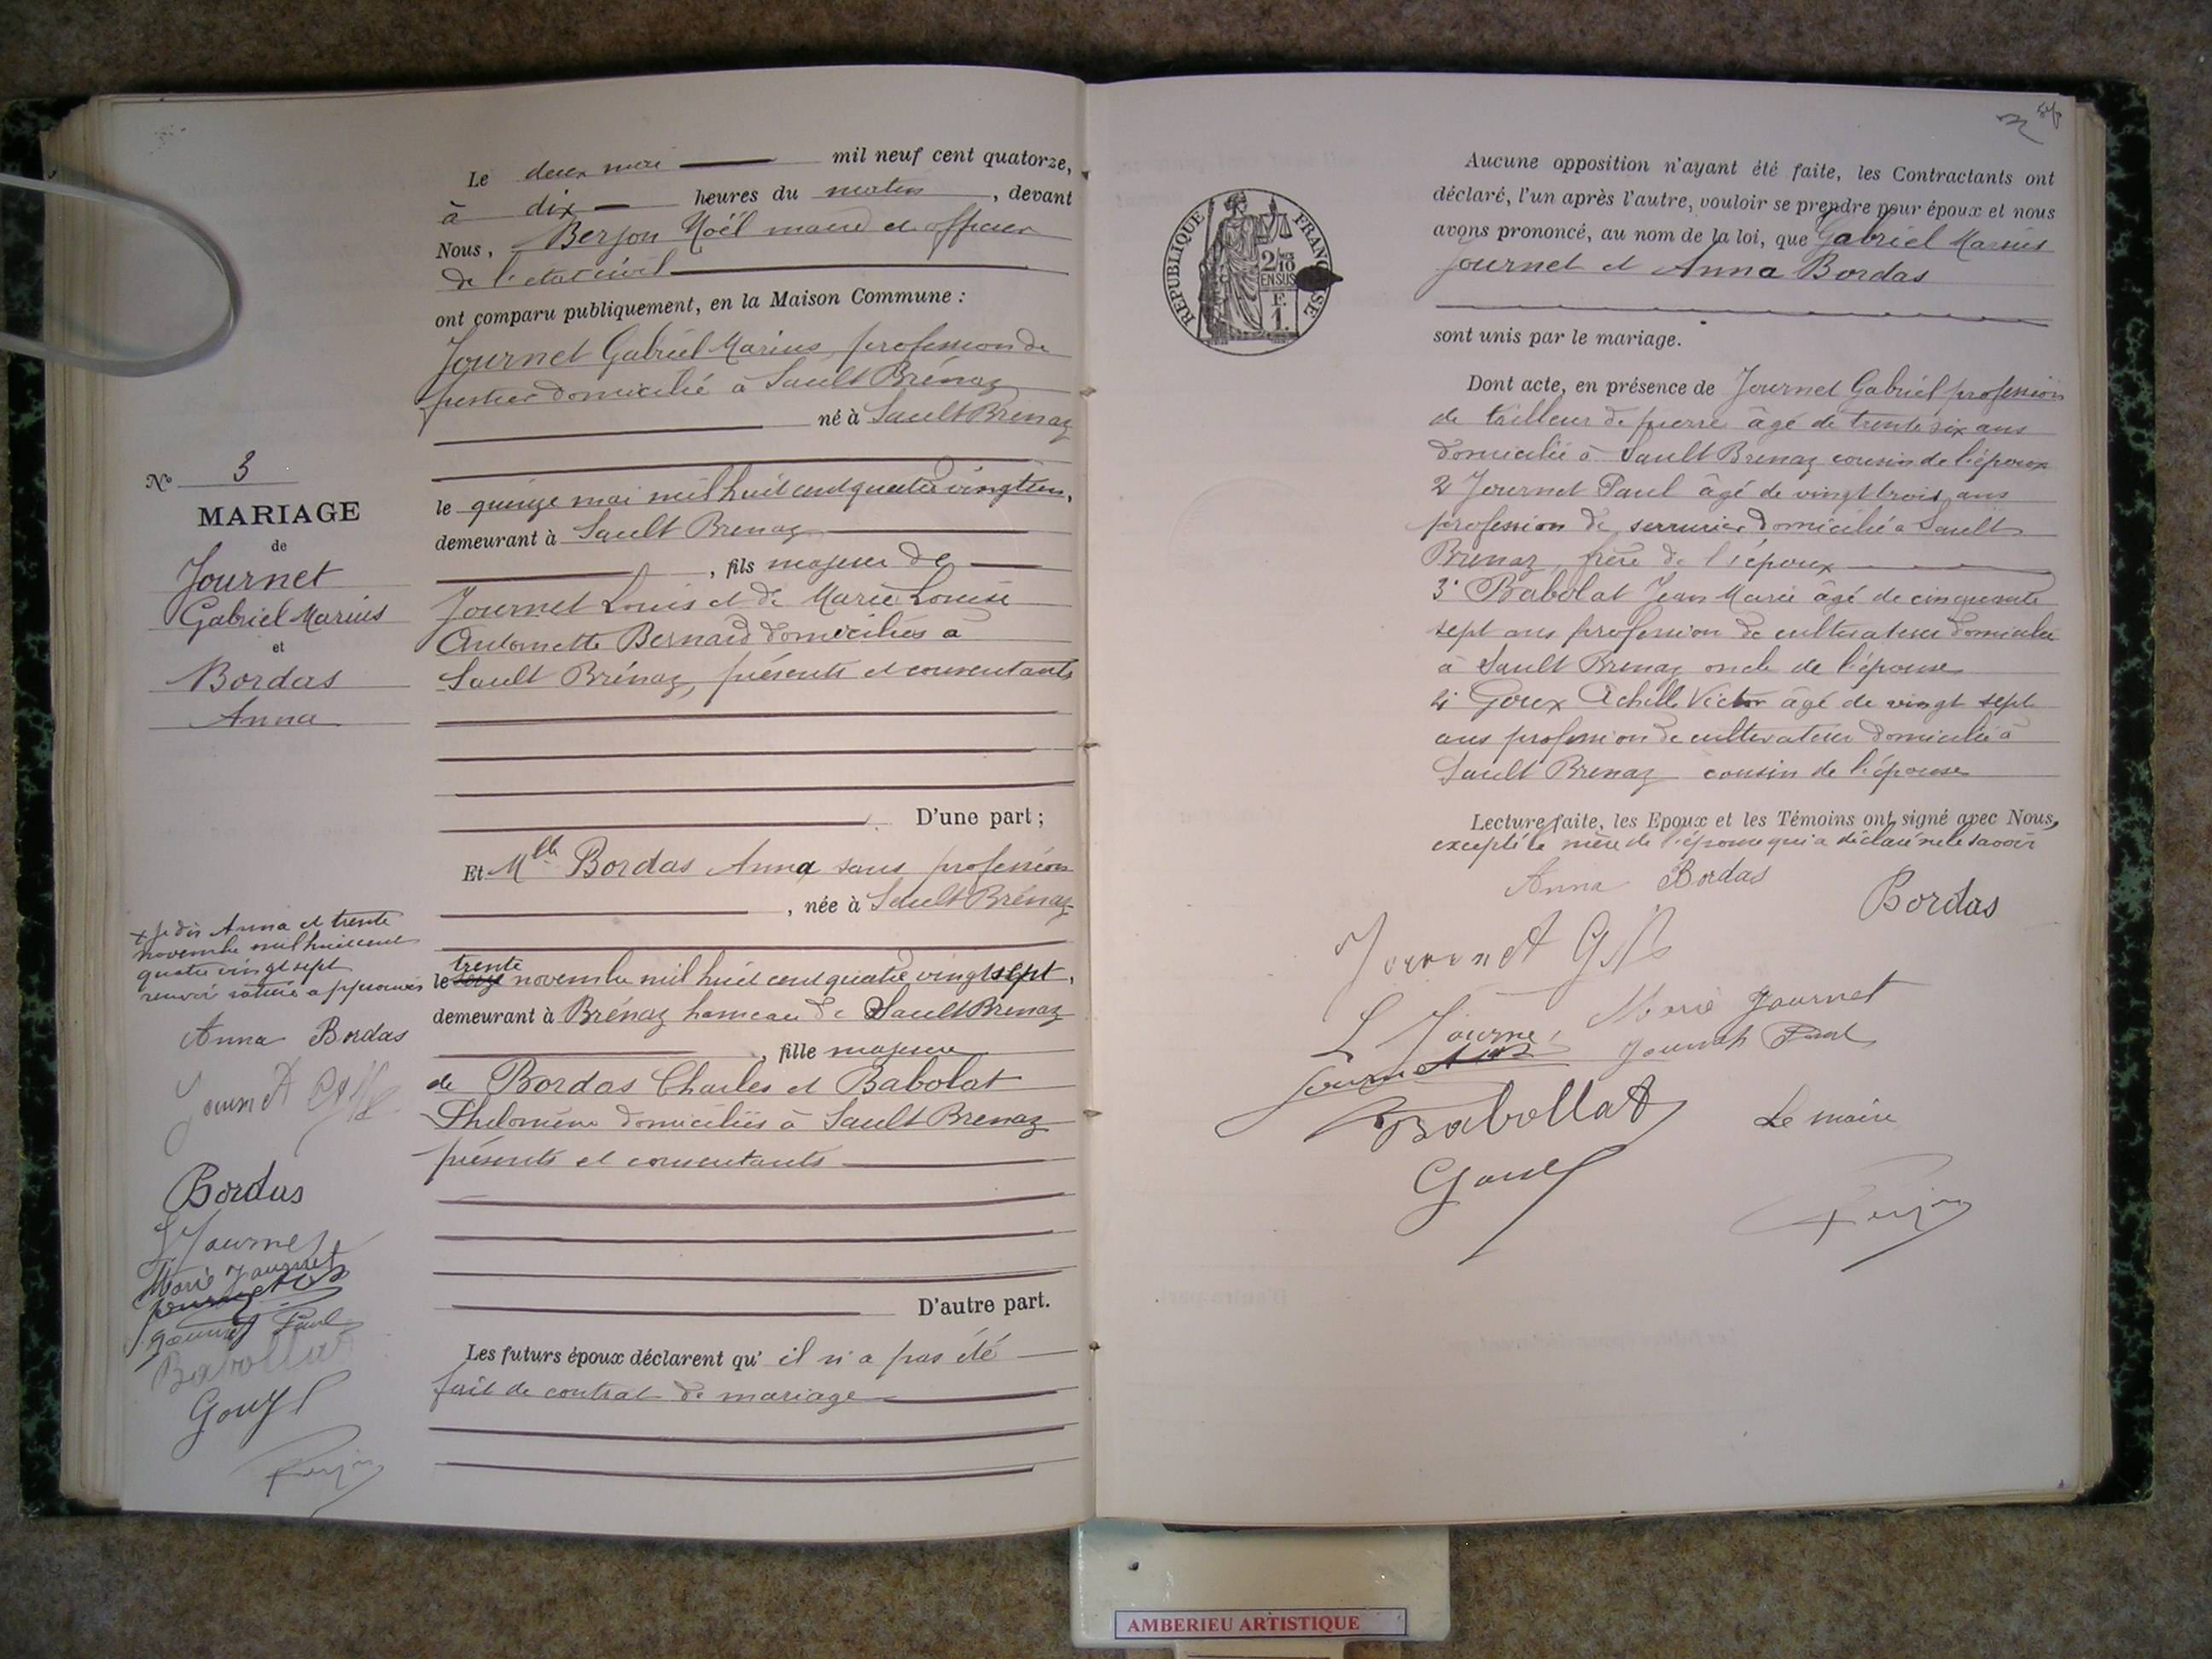 Le deux mai mil neuf cent quatorze,
à dix heures du matin, devant
Nous, Berjon Noël maire et officier
de l'etat civil
ont comparu publiquement, en la Maison Commune :
Journet Gabriel Marius profession de
domicilié à Sault Brénaz
né à Sault Brenaz
le quinze mai mil huit cent quatre vingt un,
demeurant à Sault Brenaz
, fils majeur de
Journet Louis et de Marie Louise
Antoinette Bernard domiciliés à
Sault Brénaz, présents et consentants
D'une part ;
Et Mlle Bordas Anna sans profession
, née à Sault Brénaz
trente
le novembre mil huit cent quatre vingt sept,
demeurant à Brénaz hameau de Sault Brenaz
, fille majeure
de Bordas Charles et Babolat
Philomène domiciliés à Sault Brenaz
présents et consentants
D'autre part.
Les futurs époux déclarent qu' il n'a pas été
fait de contrat de mariage
No 3
MARIAGE
de
Journet
Gabriel Marius
et
Bordas
Anna
x je dis Anna et trente
novembre mil huit cent
quatre vingt sept
renvoi approuvés
Anna Bordas
Journet
Bordas
L Journet
Marie Journet
Journet Paul
Babollat
Goux
Berjon
REPUBLIQUE FRANÇAISE
2/10
EN SUS
F.
1.
Aucune opposition n'ayant été faite, les Contractants ont
déclaré, l'un après l'autre, vouloir se prendre pour époux et nous
avons prononcé, au nom de la loi, que Gabriel Marius
Journet et Anna Bordas
sont unis par le mariage.
Dont acte, en présence de Journet Gabriel profession
de tailleur de pierre âgé de trente six ans
domicilié à Sault Brenaz cousin de l'époux
2° Journet Paul âgé de vingt trois ans
profession de serrurier domicilié à Sault
Brenaz, frère de l'époux
3° Babolat Jean Marie âgé de cinquante
sept ans profession de cultivateur domicilié
à Sault Brenaz oncle de l'épouse
4° Goux Achille Victor âgé de vingt sept
ans profession de cultivateur domicilié à
Sault Brenaz cousin de l'épouse
Lecture faite, les Epoux et les Témoins ont signé avec Nous,
excepté la mère de l'épouse qui a déclaré ne le savoir
Anna Bordas
Bordas
Journet
L Journet
Marie Journet
Journet
Journet Paul
Babollat
Le maire
Goux
Berjon
AMBERIEU ARTISTIQUE